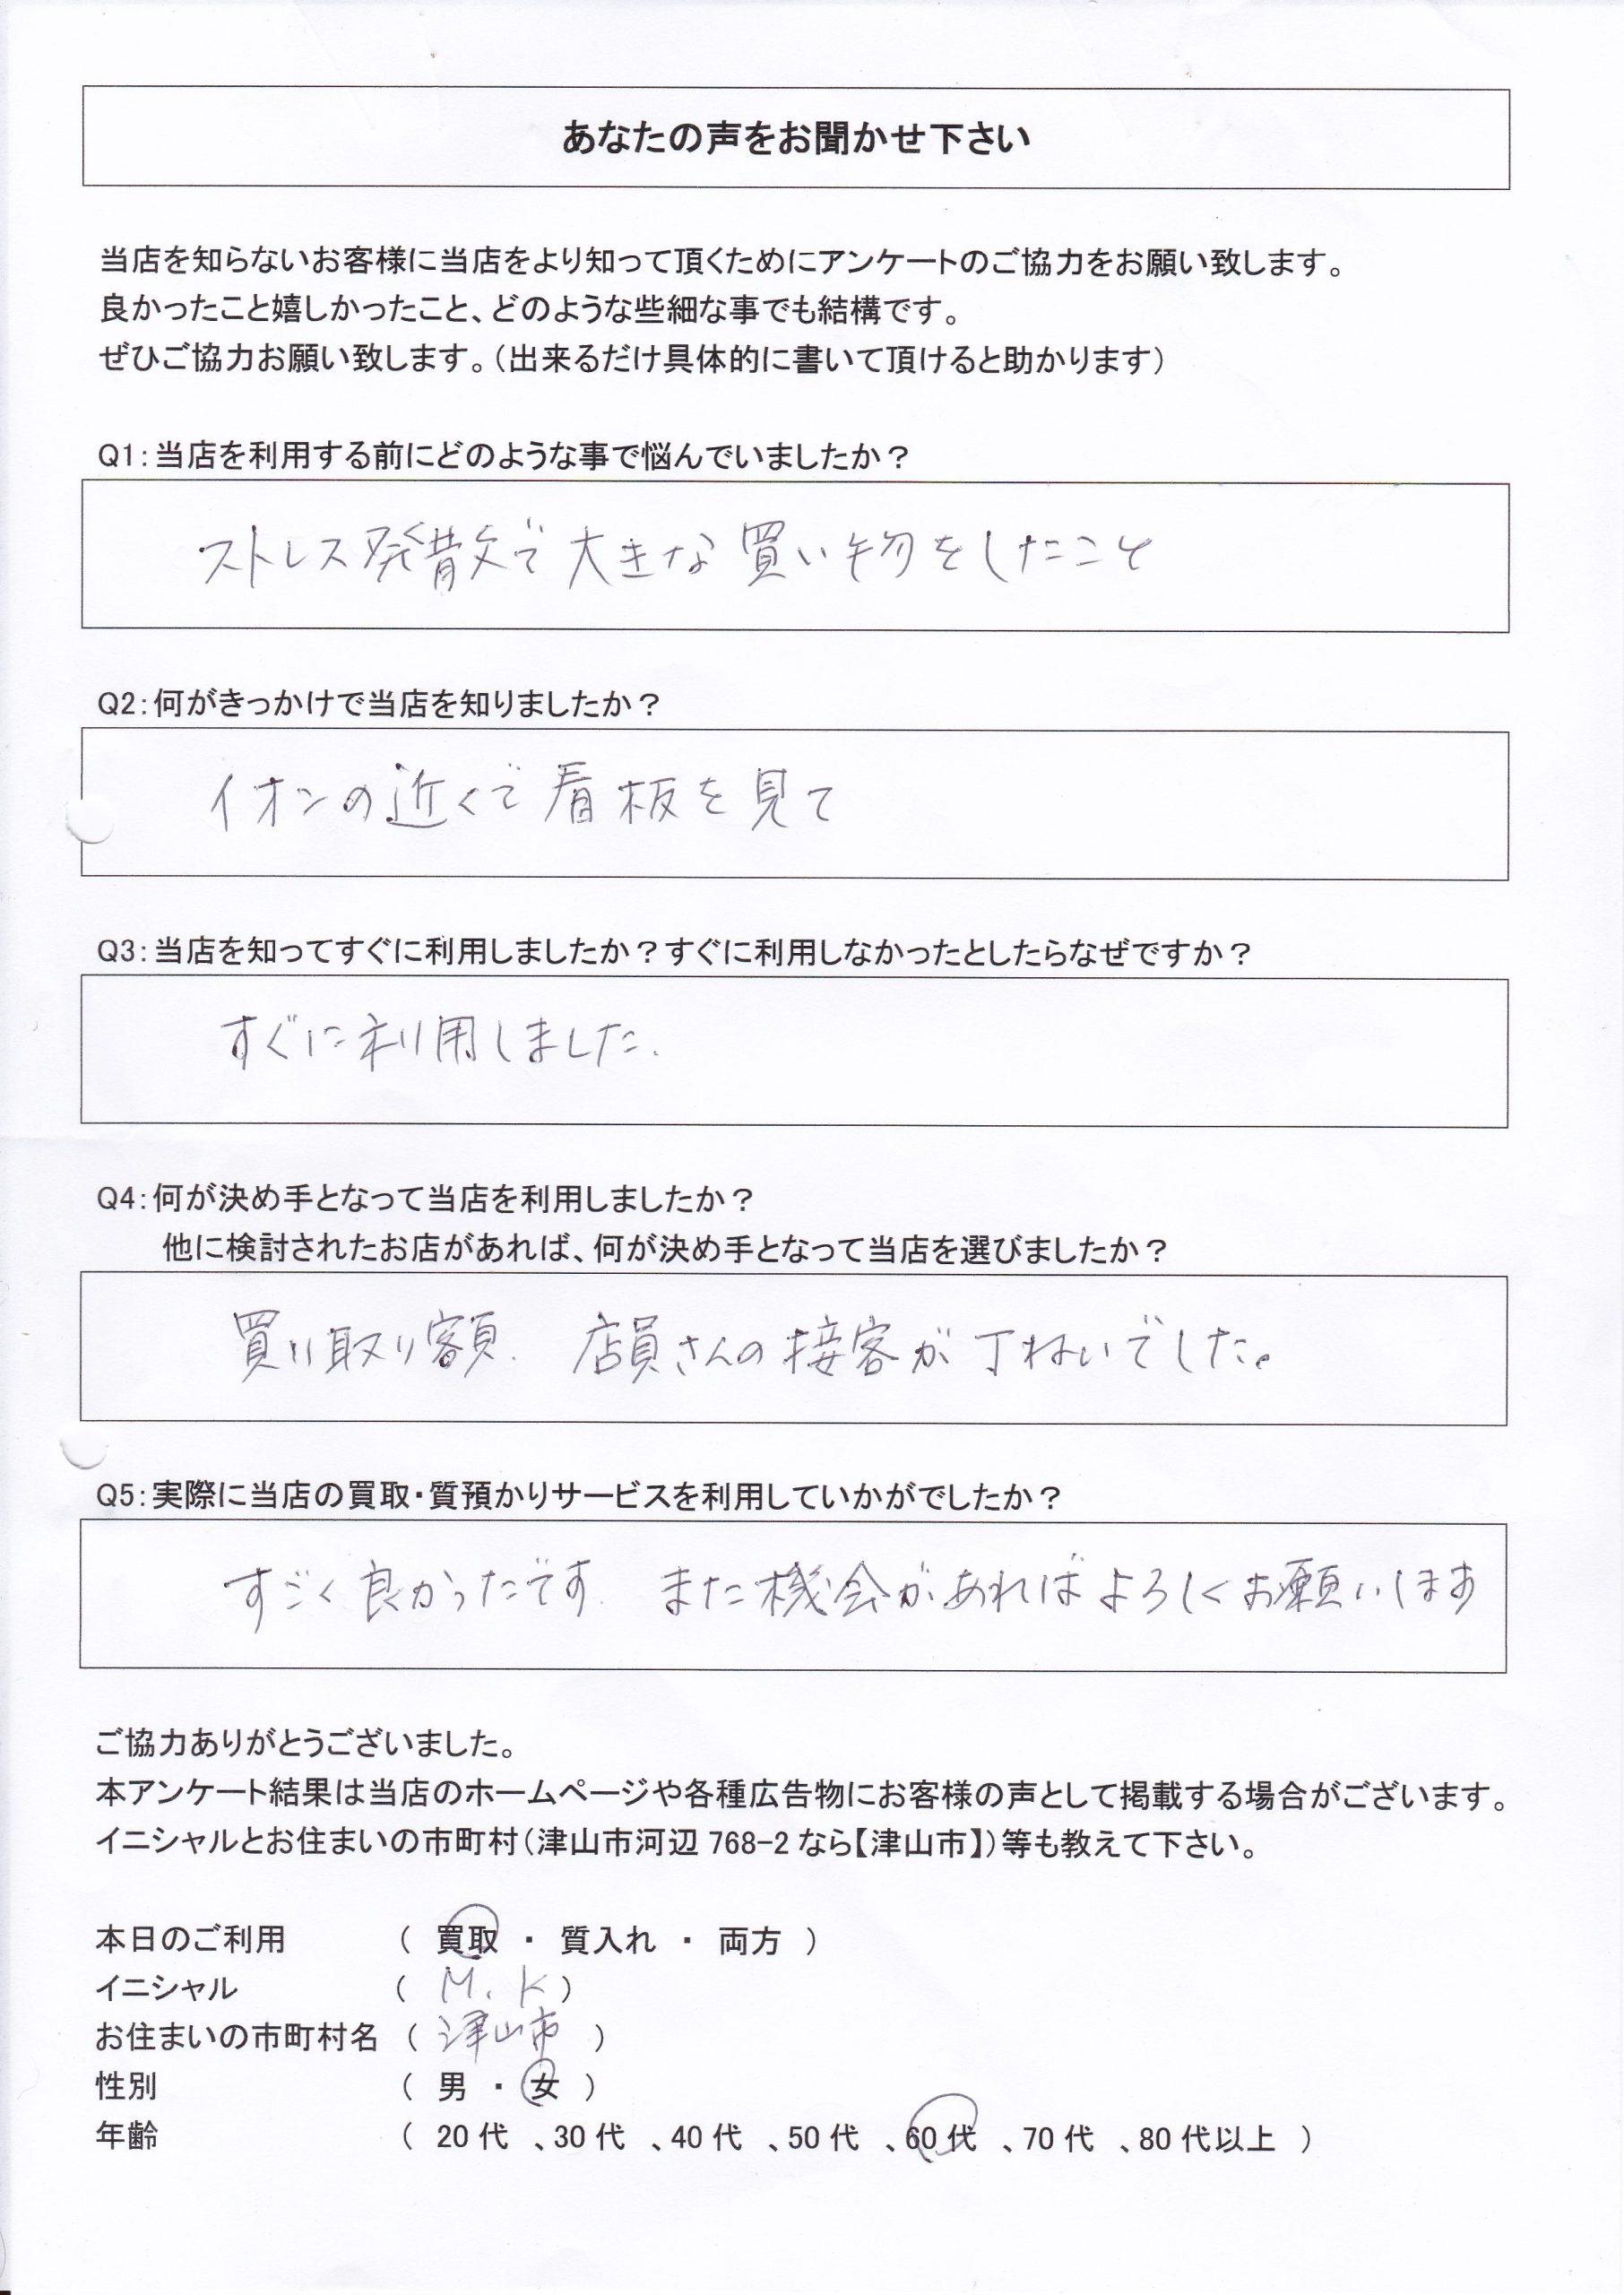 あなたの声をお聞かせ下さい
当店を知らないお客様に当店をより知って頂くためにアンケートのご協力をお願い致します。
良かったこと嬉しかったこと、どのような些細な事でも結構です。
ぜひご協力お願い致します。（出来るだけ具体的に書いて頂けると助かります）
Q1：当店を利用する前にどのような事で悩んでいましたか？
ストレス発散で大きな買い物をしたこと
Q2：何がきっかけで当店を知りましたか？
イオンの近くで看板を見て
Q3：当店を知ってすぐに利用しましたか？すぐに利用しなかったとしたらなぜですか？
すぐに利用しました.
Q4：何が決め手となって当店を利用しましたか？
他に検討されたお店があれば、何が決め手となって当店を選びましたか？
買い取り額. 店員さんの接客が丁ねいでした。
Q5：実際に当店の買取・質預かりサービスを利用していかがでしたか？
すごく良かったです. また機会があればよろしくお願いします
ご協力ありがとうございました。
本アンケート結果は当店のホームページや各種広告物にお客様の声として掲載する場合がございます。
イニシャルとお住まいの市町村（津山市河辺 768-2 なら【津山市】）等も教えて下さい。
本日のご利用 （ 買取 ・ 質入れ ・ 両方 ）
イニシャル （ M. K ）
お住まいの市町村名 （ 津山市 ）
性別 （ 男 ・ 女 ）
年齢 （ 20 代 、30 代 、40 代 、50 代 、60 代 、70 代 、80 代以上 ）